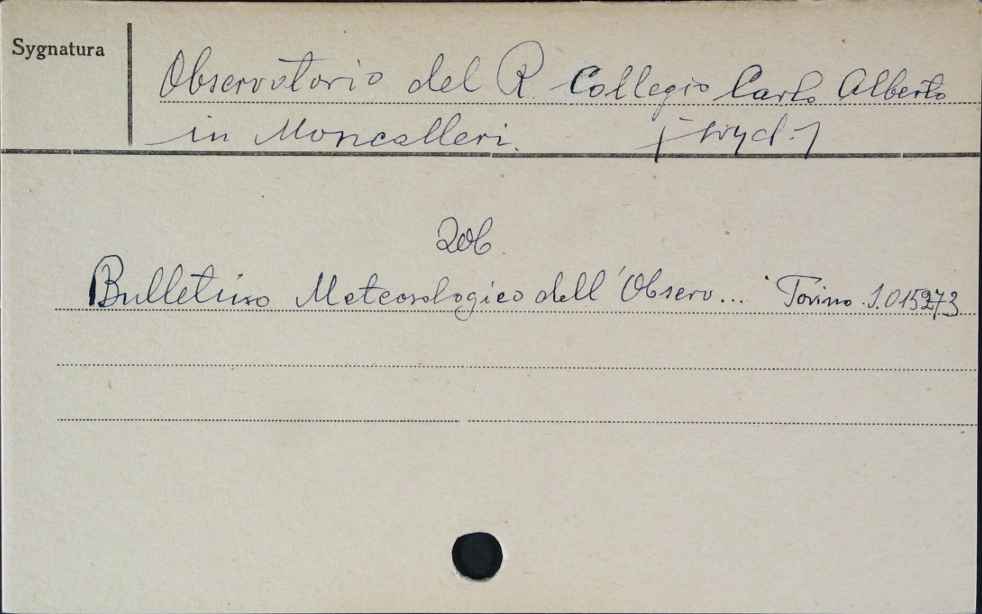 Sygnatura
Observatorio del R. Collegio Carlo Alberto
in Moncalleri. [wyd.]
zob.
Bulletino Meteorologico dell'Observ... Torino. S.015273